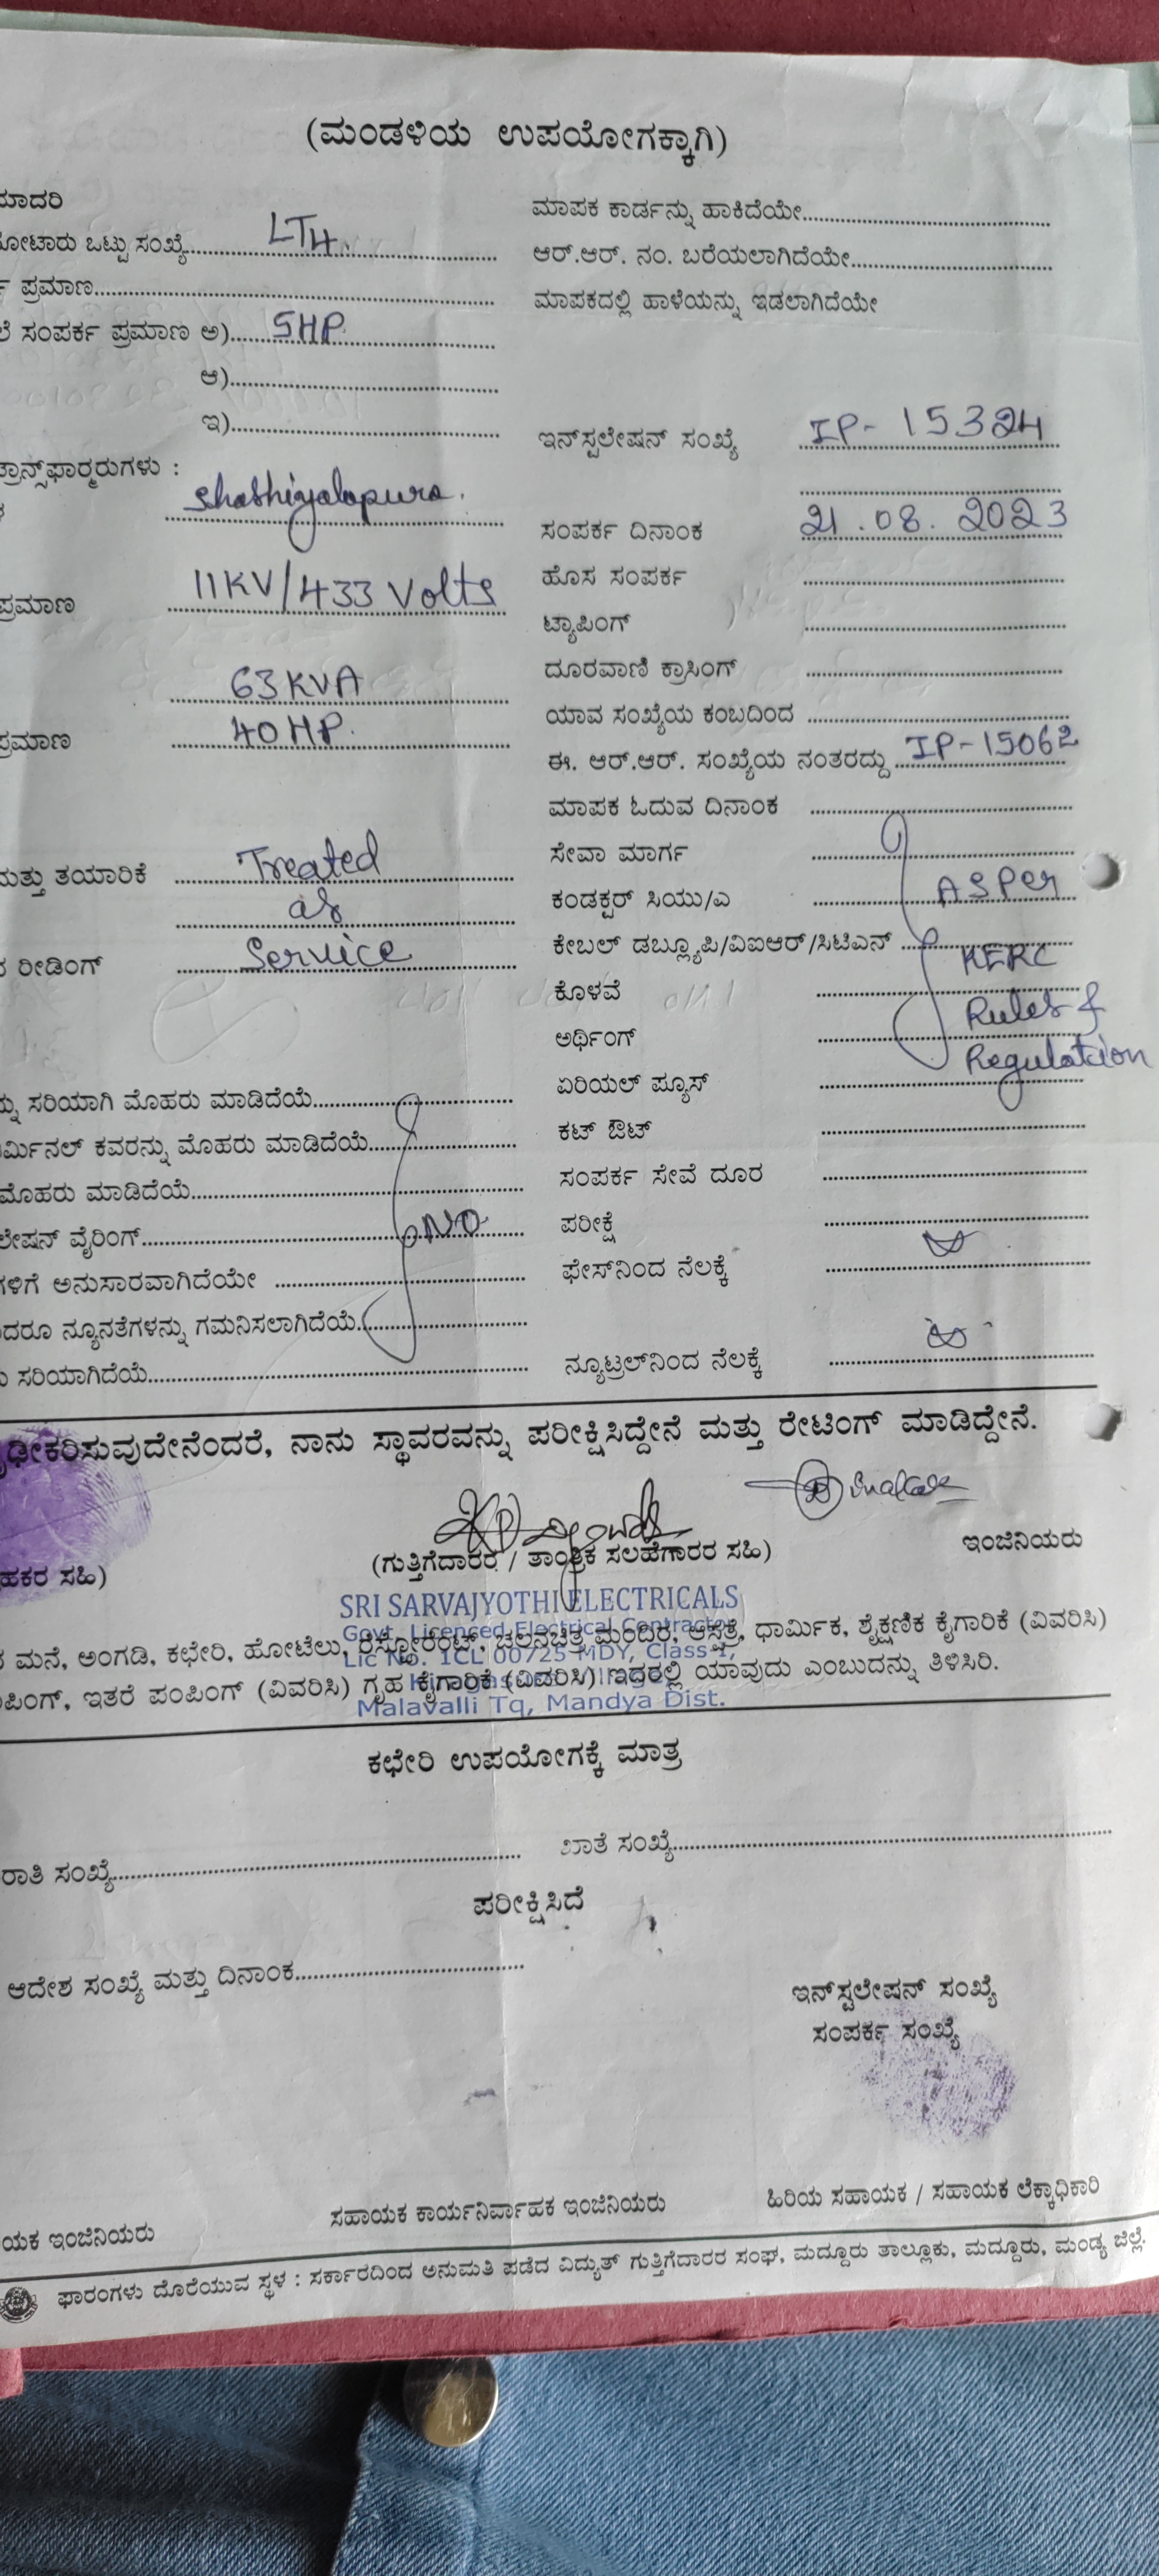 (ಮಂಡಳಿಯ ಉಪಯೋಗಕ್ಕಾಗಿ)
ಮಾದರಿ
ಮೋಟಾರು ಒಟ್ಟು ಸಂಖ್ಯೆ LT4.
ಪ್ರಮಾಣ
ಸಂಪರ್ಕ ಪ್ರಮಾಣ ಅ) 5HP
ಆ)
ಇ)
ಟ್ರಾನ್ಸ್‌ಫಾರ್ಮರುಗಳು :
Shathiyalapura.
ಪ್ರಮಾಣ 11KV/433 Volts
63 KVA
ಪ್ರಮಾಣ 40 HP.
ಮತ್ತು ತಯಾರಿಕೆ Treated
as
ರೀಡಿಂಗ್ Service
ಸರಿಯಾಗಿ ಮೊಹರು ಮಾಡಿದೆಯೆ
ರ್ಮಿನಲ್ ಕವರನ್ನು ಮೊಹರು ಮಾಡಿದೆಯೆ
ಮೊಹರು ಮಾಡಿದೆಯೆ
ಲೇಷನ್ ವೈರಿಂಗ್ NO
ಗಳಿಗೆ ಅನುಸಾರವಾಗಿದೆಯೇ
ದರೂ ನ್ಯೂನತೆಗಳನ್ನು ಗಮನಿಸಲಾಗಿದೆಯೆ
ಸರಿಯಾಗಿದೆಯೆ
ಮಾಪಕ ಕಾರ್ಡನ್ನು ಹಾಕಿದೆಯೇ
ಆರ್.ಆರ್. ನಂ. ಬರೆಯಲಾಗಿದೆಯೇ
ಮಾಪಕದಲ್ಲಿ ಹಾಳೆಯನ್ನು ಇಡಲಾಗಿದೆಯೇ
ಇನ್‌ಸ್ಟಲೇಷನ್ ಸಂಖ್ಯೆ IP-15324
ಸಂಪರ್ಕ ದಿನಾಂಕ 21.08.2023
ಹೊಸ ಸಂಪರ್ಕ
ಟ್ಯಾಪಿಂಗ್
ದೂರವಾಣಿ ಕ್ರಾಸಿಂಗ್
ಯಾವ ಸಂಖ್ಯೆಯ ಕಂಬದಿಂದ
ಈ. ಆರ್.ಆರ್. ಸಂಖ್ಯೆಯ ನಂತರದ್ದು IP-15062
ಮಾಪಕ ಓದುವ ದಿನಾಂಕ
ಸೇವಾ ಮಾರ್ಗ
ಕಂಡಕ್ಟರ್ ಸಿಯು/ಎ ASPer
ಕೇಬಲ್ ಡಬ್ಲ್ಯೂಪಿ/ವಿಐಆರ್/ಸಿಟಿಎನ್ KERC
ಕೊಳವೆ Rules &
ಅರ್ಥಿಂಗ್ Regulation
ಏರಿಯಲ್ ಪ್ಯೂಸ್
ಕಟ್ ಔಟ್
ಸಂಪರ್ಕ ಸೇವೆ ದೂರ
ಪರೀಕ್ಷೆ
ಫೇಸ್‌ನಿಂದ ನೆಲಕ್ಕೆ
ನ್ಯೂಟ್ರಲ್‌ನಿಂದ ನೆಲಕ್ಕೆ
ಢೀಕರಿಸುವುದೇನೆಂದರೆ, ನಾನು ಸ್ಥಾವರವನ್ನು ಪರೀಕ್ಷಿಸಿದ್ದೇನೆ ಮತ್ತು ರೇಟಿಂಗ್ ಮಾಡಿದ್ದೇನೆ.
ಹಕರ ಸಹಿ) (ಗುತ್ತಿಗೆದಾರರ / ತಾಂತ್ರಿಕ ಸಲಹೆಗಾರರ ಸಹಿ) ಇಂಜಿನಿಯರು
SRI SARVAJYOTHI ELECTRICALS
Govt. Licenced Electrical Contractor
ಮನೆ, ಅಂಗಡಿ, ಕಛೇರಿ, ಹೋಟೆಲು, ರೆಸ್ಟೋರೆಂಟ್, ಚಲನಚಿತ್ರ ಮಂದಿರ, ಆಸ್ಪತ್ರೆ, ಧಾರ್ಮಿಕ, ಶೈಕ್ಷಣಿಕ ಕೈಗಾರಿಕೆ (ವಿವರಿಸಿ)
Lic No. 1CL 00725 MDY, Class-1,
ಪಿಂಗ್, ಇತರೆ ಪಂಪಿಂಗ್ (ವಿವರಿಸಿ) ಗೃಹ ಕೈಗಾರಿಕೆ (ವಿವರಿಸಿ) ಇದರಲ್ಲಿ ಯಾವುದು ಎಂಬುದನ್ನು ತಿಳಿಸಿರಿ.
Malavalli Tq, Mandya Dist.
ಕಛೇರಿ ಉಪಯೋಗಕ್ಕೆ ಮಾತ್ರ
ರಾತಿ ಸಂಖ್ಯೆ ಖಾತೆ ಸಂಖ್ಯೆ
ಪರೀಕ್ಷಿಸಿದೆ
ಆದೇಶ ಸಂಖ್ಯೆ ಮತ್ತು ದಿನಾಂಕ
ಇನ್‌ಸ್ಟಲೇಷನ್ ಸಂಖ್ಯೆ
ಸಂಪರ್ಕ ಸಂಖ್ಯೆ
ಯಕ ಇಂಜಿನಿಯರು ಸಹಾಯಕ ಕಾರ್ಯನಿರ್ವಾಹಕ ಇಂಜಿನಿಯರು ಹಿರಿಯ ಸಹಾಯಕ / ಸಹಾಯಕ ಲೆಕ್ಕಾಧಿಕಾರಿ
ಫಾರಂಗಳು ದೊರೆಯುವ ಸ್ಥಳ : ಸರ್ಕಾರದಿಂದ ಅನುಮತಿ ಪಡೆದ ವಿದ್ಯುತ್ ಗುತ್ತಿಗೆದಾರರ ಸಂಘ, ಮದ್ದೂರು ತಾಲ್ಲೂಕು, ಮದ್ದೂರು, ಮಂಡ್ಯ ಜಿಲ್ಲೆ.